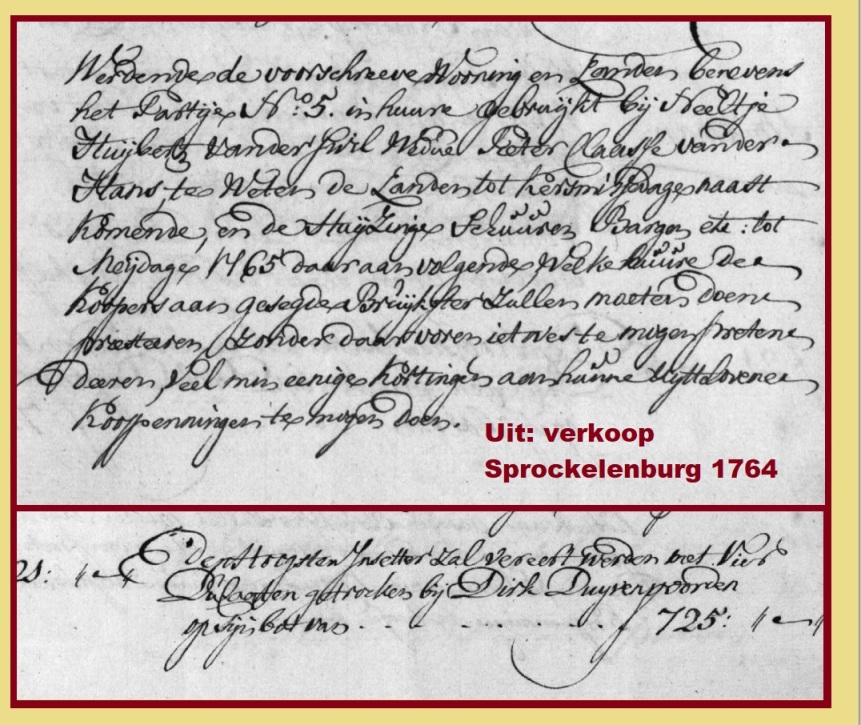 Werdende de voorschreeve Wooning en Landen benevens
het Partije N:o 5. in huure gebruijkt bij Neeltje
Huijbertz vander Wedue Pieter Claasse vander
Hans, te Weten de Landen tot kersmisdage naast
komende, en de Huijzinge Schuuren Bargen etc: tot
Meijdage 1765 daar aan volgende, Welke huure de
koopers aan gesegde Bruijkster zullen moeten doen
præsteeren, zonder daar voren ietwes te mogen preten
deeren, veel min eenige kortingen aan hunne uytteloven
kooppenningen te mogen doen.
Uit: verkoop
Sprockelenburg 1764
21: " - " Den Hoogsten Insetter zal vereert werden met Vier
Ducaten getrocken bij Dirk Duyvenvoorden
op sijn bot van - - - - - ƒ 725: " - "